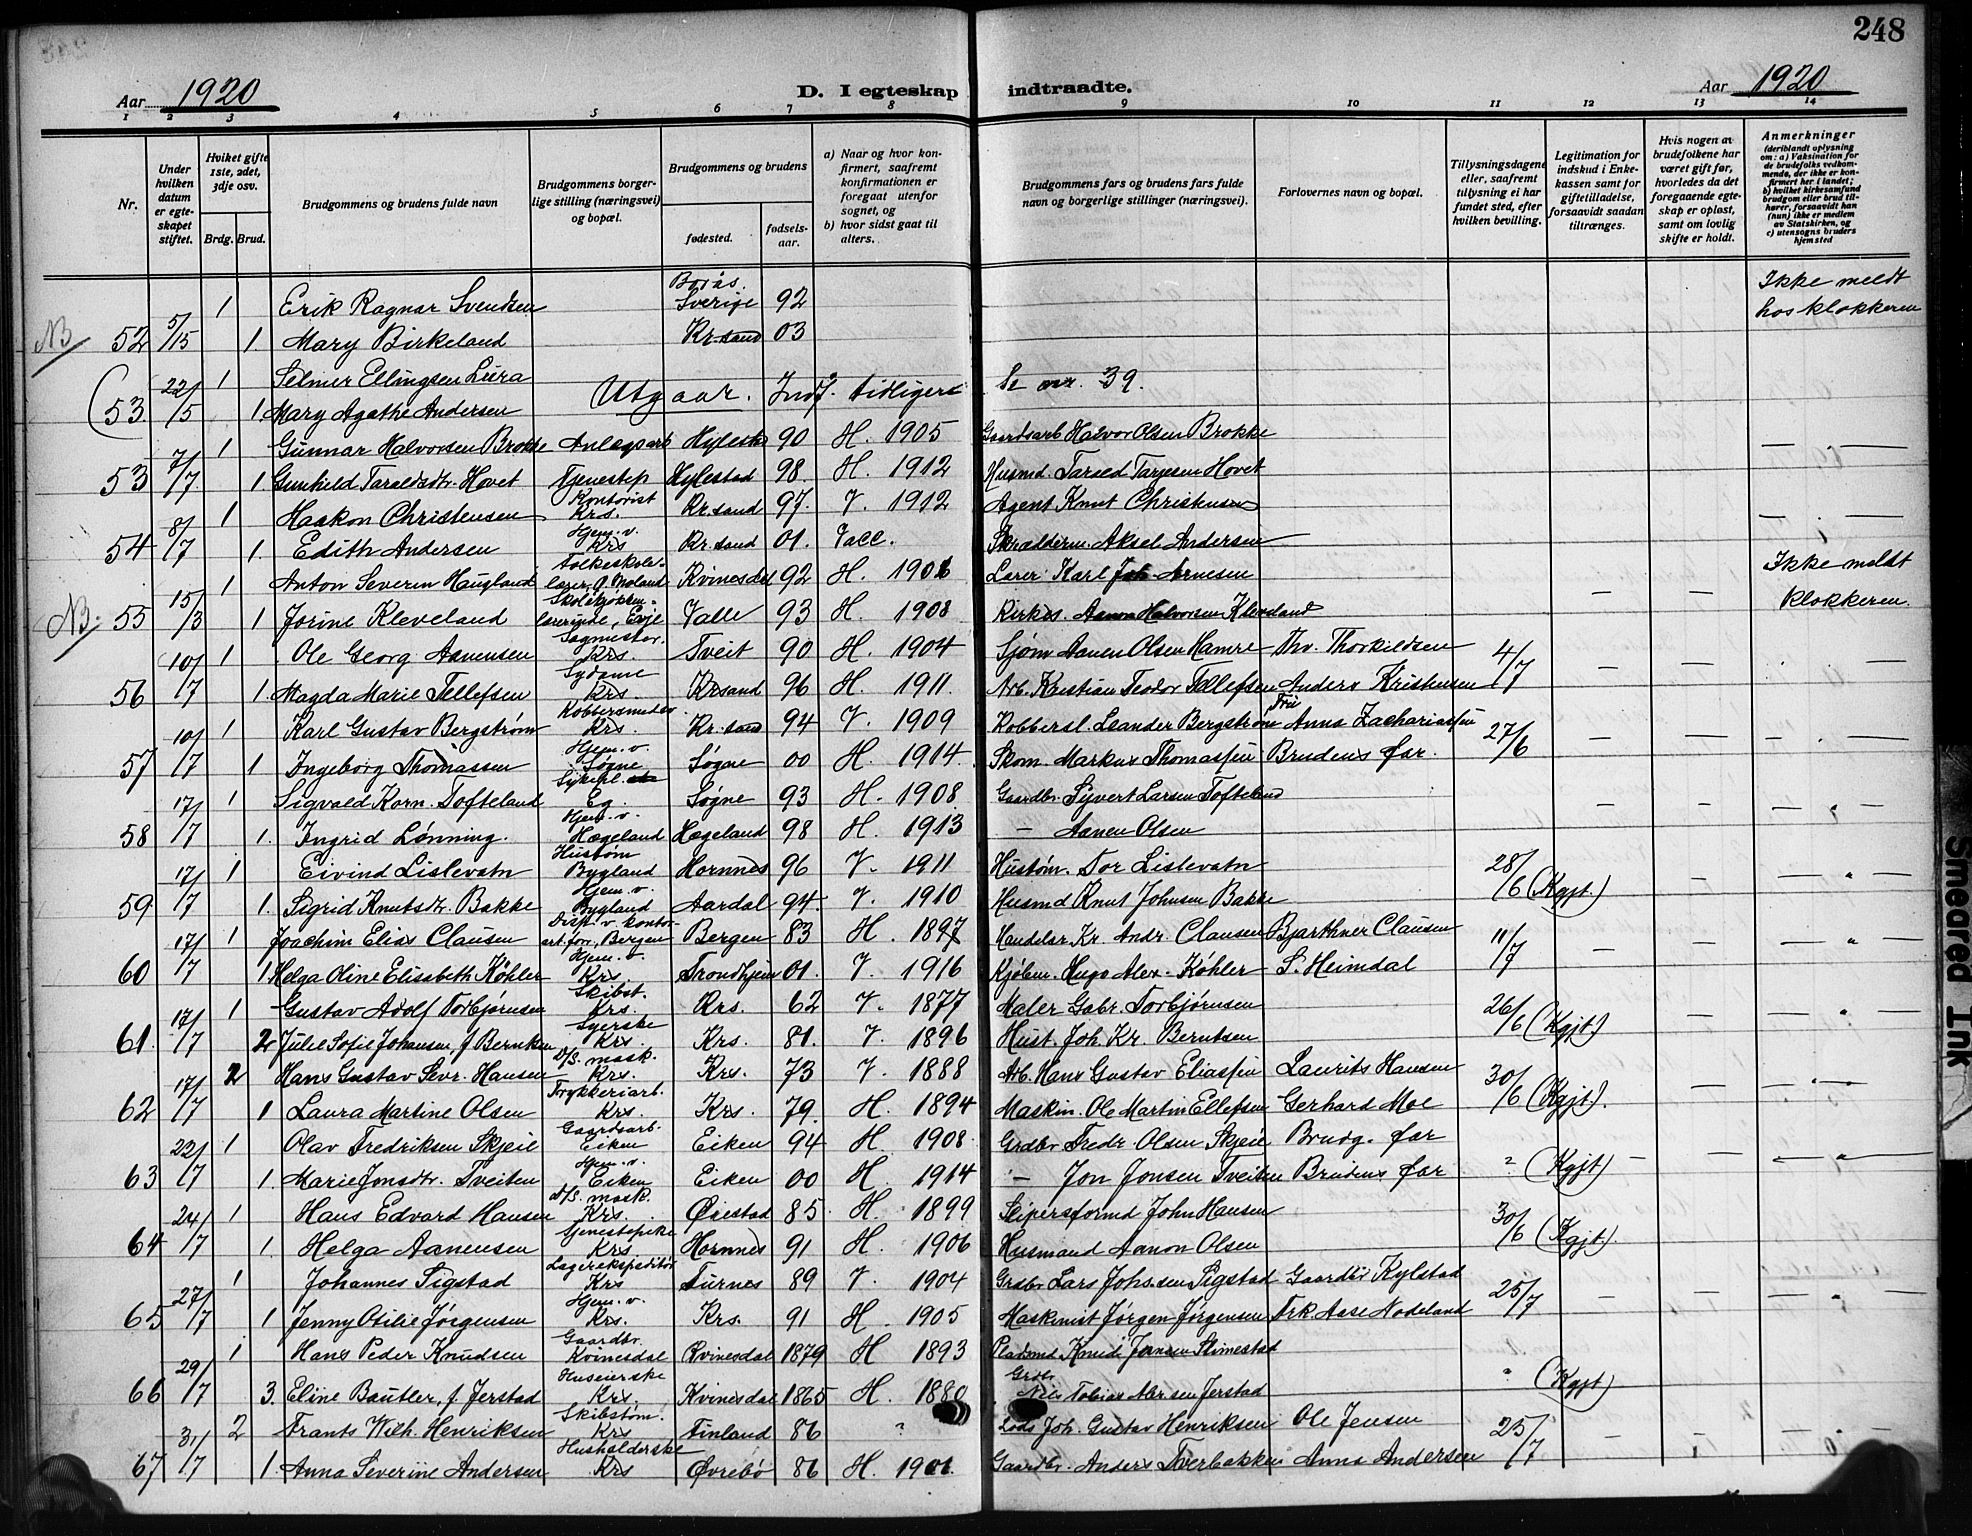 248
Aar 1920 D. I egteskap indtraadte. Aar 1920
1 2 3 4 5 6 7 8 9 10 11 12 13 14
Nr.
Under hvilken datum er egteskapet stiftet.
Hvilket gifte 1ste, 2det, 3dje osv.
Brdg. Brud.
Brudgommens og brudens fulde navn
Brudgommens borgerlige stilling (næringsvei) og bopæl.
Brudgommens og brudens
fødested. fødselsaar.
a) Naar og hvor konfirmert, saafremt konfirmationen er foregaat utenfor sognet, og
b) hvor sidst gaat til alters.
Brudgommens fars og brudens fars fulde navn og borgerlige stillinger (næringsvei).
Forlovernes navn og bopæl.
Tillysningsdagene eller, saafremt tillysning ei har fundet sted, efter hvilken bevilling.
Legitimation for indskud i Enkekassen samt for giftetilladelse, forsaavidt saadan tiltrænges.
Hvis nogen av brudefolkene har været gift før, hvorledes da det foregaaende egteskap er opløst, samt om lovlig skifte er holdt.
Anmerkninger (deriblandt oplysning om: a) Vaksination for de brudefolks vedkommende, der ikke er konfirmert her i landet; b) hvilket kirkesamfund brudgom eller brud tilhører, forsaavidt han (hun) ikke er medlem av Statskirken, og c) utensogns bruders hjemsted
1 Erik Ragnar Svendsen Borås. Sverige 92 Ikke meldt hos klokkeren
NB 52 5/15 1. Mary Birkeland Kr.sand 03
22/5 1 Selmer Ellingsen Lura Utgaar. Indf. tidligere Se nr. 39.
(53. 1 Mary Agathe Andersen
7/7 1 Gunnar Halvorsen Brokke Anlægsarb Hylestad 90 H. 1905 Gaardsarb Halvor Olsen Brokke
53 1. Gunhild Taraldsdtr. Hovet Tjenestep Hylestad 98. H. 1912 Husmd. Tarald Tarjesen Hovet
8/7 1 Haakon Christensen Kontorist Krs. Kr.sand 97. V. 1912 Agent Knut Christensen
54 1. Edith Andersen Hjem.v. Krs Kr.sand 01. Vacc. Aksel Andersen
15/3 1 Anton Severin Haugland Folkeskolelærer, Kvinesdal 92 H. Lærer Karl Arnesen Ikke meldt
NB. 55 1 Jorine Kleveland Skolekjøkkenlærerinde, Evje Valle 93 H. 1908 Kirkes. Aanon Halvorsen Kleveland Klokkeren.
10/7 1 Ole Georg Aanensen Sagmester. Krs. Tveit 90 H. 1904 Sjøm Aanen Olsen Hamre Thv. Thorkildsen 4/7
56 1. Magda Marie Tellefsen Sydame Krs. Krsand 96 H. 1911. Arb. Kristian Teodor Tellefsen Anders Kristensen
10/7 1 Karl Gustav Bergstrøm Kobbersmed Krs. Kr.sand 94 V. 1909 Kobbersl. Leander Bergstrøm Frü Anna Zachariassen 27/6
57 1 Ingeborg Thomassen Hjem.v. Søgne Søgne 00 H. 1914. Skom. Markus Thomassen Brudens far.
17/7 1 Sigvald Korn. Tofteland Eg. Søgne 93 H. 1908. Gaardbr. Syvert Larsen Tofteland
58 1. Ingrid Lønning. Hjem.v. Hægeland Hægeland 98 H. 1913 — Aanen Olsen
17/7 1 Eivind Lislevatn Hustøm Bygland Hornnes 96 V. 1911 Hustøm. Tor Lislevatn 28/6 (Kgjt.)
59 1. Sigrid Knutsdtr. Bakke Hjem.v. Bygland Aardal 94. V. 1910 Husmd Knut Johnsen Bakke
17/7 1 Joachim Elias Clausen Bergen Bergen 83 H. 1897 Handelsr. Kr. Andr. Clausen Bjarthner Clausen 11/7
60 1 Helga Oline Elisabeth Køhler Hjem.v. Krs Trondhjem 01. V. 1916 Kjøbm. Hugo Alex. Køhler S. Heimdal
17/7 1 Gustav Adolf Torbjørnsen Skibst. Krs. Krs. 62 V. 1877 Maler Gabr. Torbjørnsen 26/6 (Kgjt)
61. 2 Julie Sofie Johansen, f. Berntsen Syerske Krs. Krs. 81. V. 1896 Hust. Joh. Kr. Berntsen
17/7 2 Hans Gustav Sevr. Hansen D/S. mask. Krs. Krs. 73 V. 1888 Arb. Hans Gustav Eliassen Laurits Hansen 30/6 (Kgjt).
62 1 Laura Martine Olsen Trykkeriarb. Krs. Krs. 79. H. 1894 Maskin. Ole Martin Ellefsen Gerhard Moe
22/7 1 Olav Fredriksen Skjeie Gaardsarb. Eiken Eiken 94 H. 1908 Grdbr Fredr Olsen Skjeie Brudg. far
63 1. Marie Jonsdtr. Tveiten Hjem.v. Eiken Eiken 00 H. 1914 — Jon Jonsen Tveiten Brudens far (Kgjt)
24/7 1 Hans Edvard Hansen D/S. mask. Krs. Øiestad 85. H. 1899 Slipersformd John Hansen 30/6 (Kgjt).
64 1. Helga Aanensen Tjenestepike Krs Hornnes 91 H. 1906 Husmand Aanon Olsen
27/7 1 Johannes Sigstad Lagerekspeditør Krs Furnes 89 V. 1904 Grdbr Lars Johs.sen Sigstad Gaardbr Kylstad 25/7
65 1 Jenny Otilie Jørgensen Hjem.v. Krs. Krs. 91 H. 1905 Maskinist Jørgen Jørgensen Frk Aase Nodeland
29/7 1 Hans Peder Knudsen Gaardbr. Kvinesdal Kvinesdal 1879 H 1893 Pladsmd Knud Jensen Slimestad
66 3. Eline Bautler, f. Jerstad Huseierske Krs. Kvinesdal 1865 H. 1880 Grdbr. Nils Tobias Abr.sen Jerstad (Kgjt)
31/7 2 Frants Wilh. Henriksen Skibstøm. Krs Finland 86 " Lods Joh. Gustav Henriksen Ole Jensen 25/7
67 1. Anna Severine Andersen Husholderske Krs Øvrebø 86 H. 1901. Gaardbr. Anders Tverbakken Anna Andersen
Smeared Ink